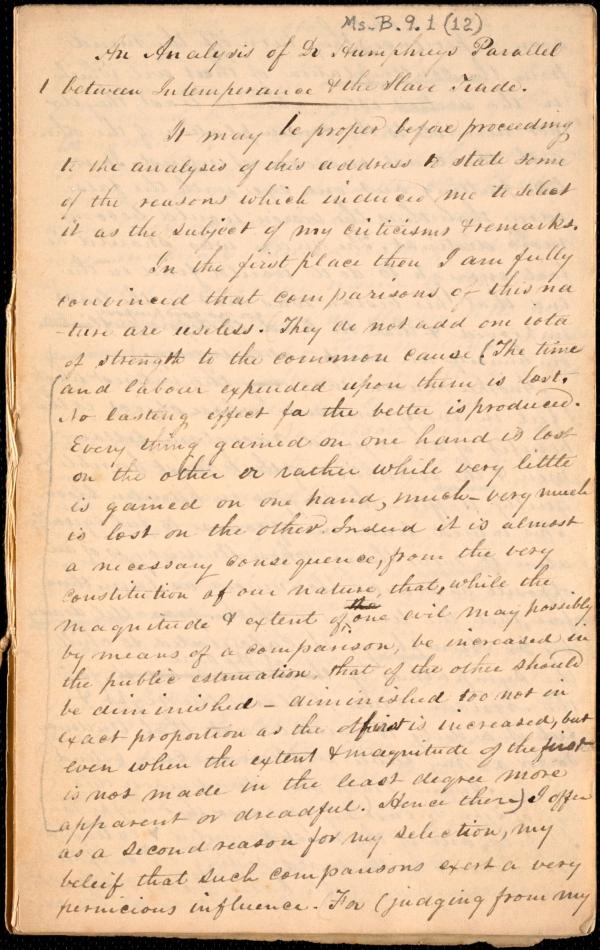 Ms. B. 9. 1 (12)
An Analysis of Dr Humphreys Parallel
1 between Intemperance & the Slave Trade.
It may be proper before proceeding
to the analysis of this address to state some
of the reasons which induced me to select
it as the subject of my criticisms & remarks.
In the first place then I am fully
convinced that comparisons of this na
-ture are useless. They do not add one iota
of strength to the common cause. (The time
and labour expended upon them is lost.
No lasting effect for the better is produced.
Every thing gained on one hand is lost
on the other or rather while very little
is gained on one hand, much - very much
is lost on the other. Indeed it is almost
a necessary consequence, from the very
constitution of our nature, that, while the
magnitude & extent of one evil may possibly
by means of a comparison, be increased in
the public estimation, that of the other should
be diminished - diminished too not in
exact proportion as the first is increased, but
even when the extent & magnitude of the first
is not made in the least degree more
apparent or dreadful. Hence then) I offer
as a second reason for my selection, my
beleif that such comparisons exert a very
pernicious influence. For (judging from my